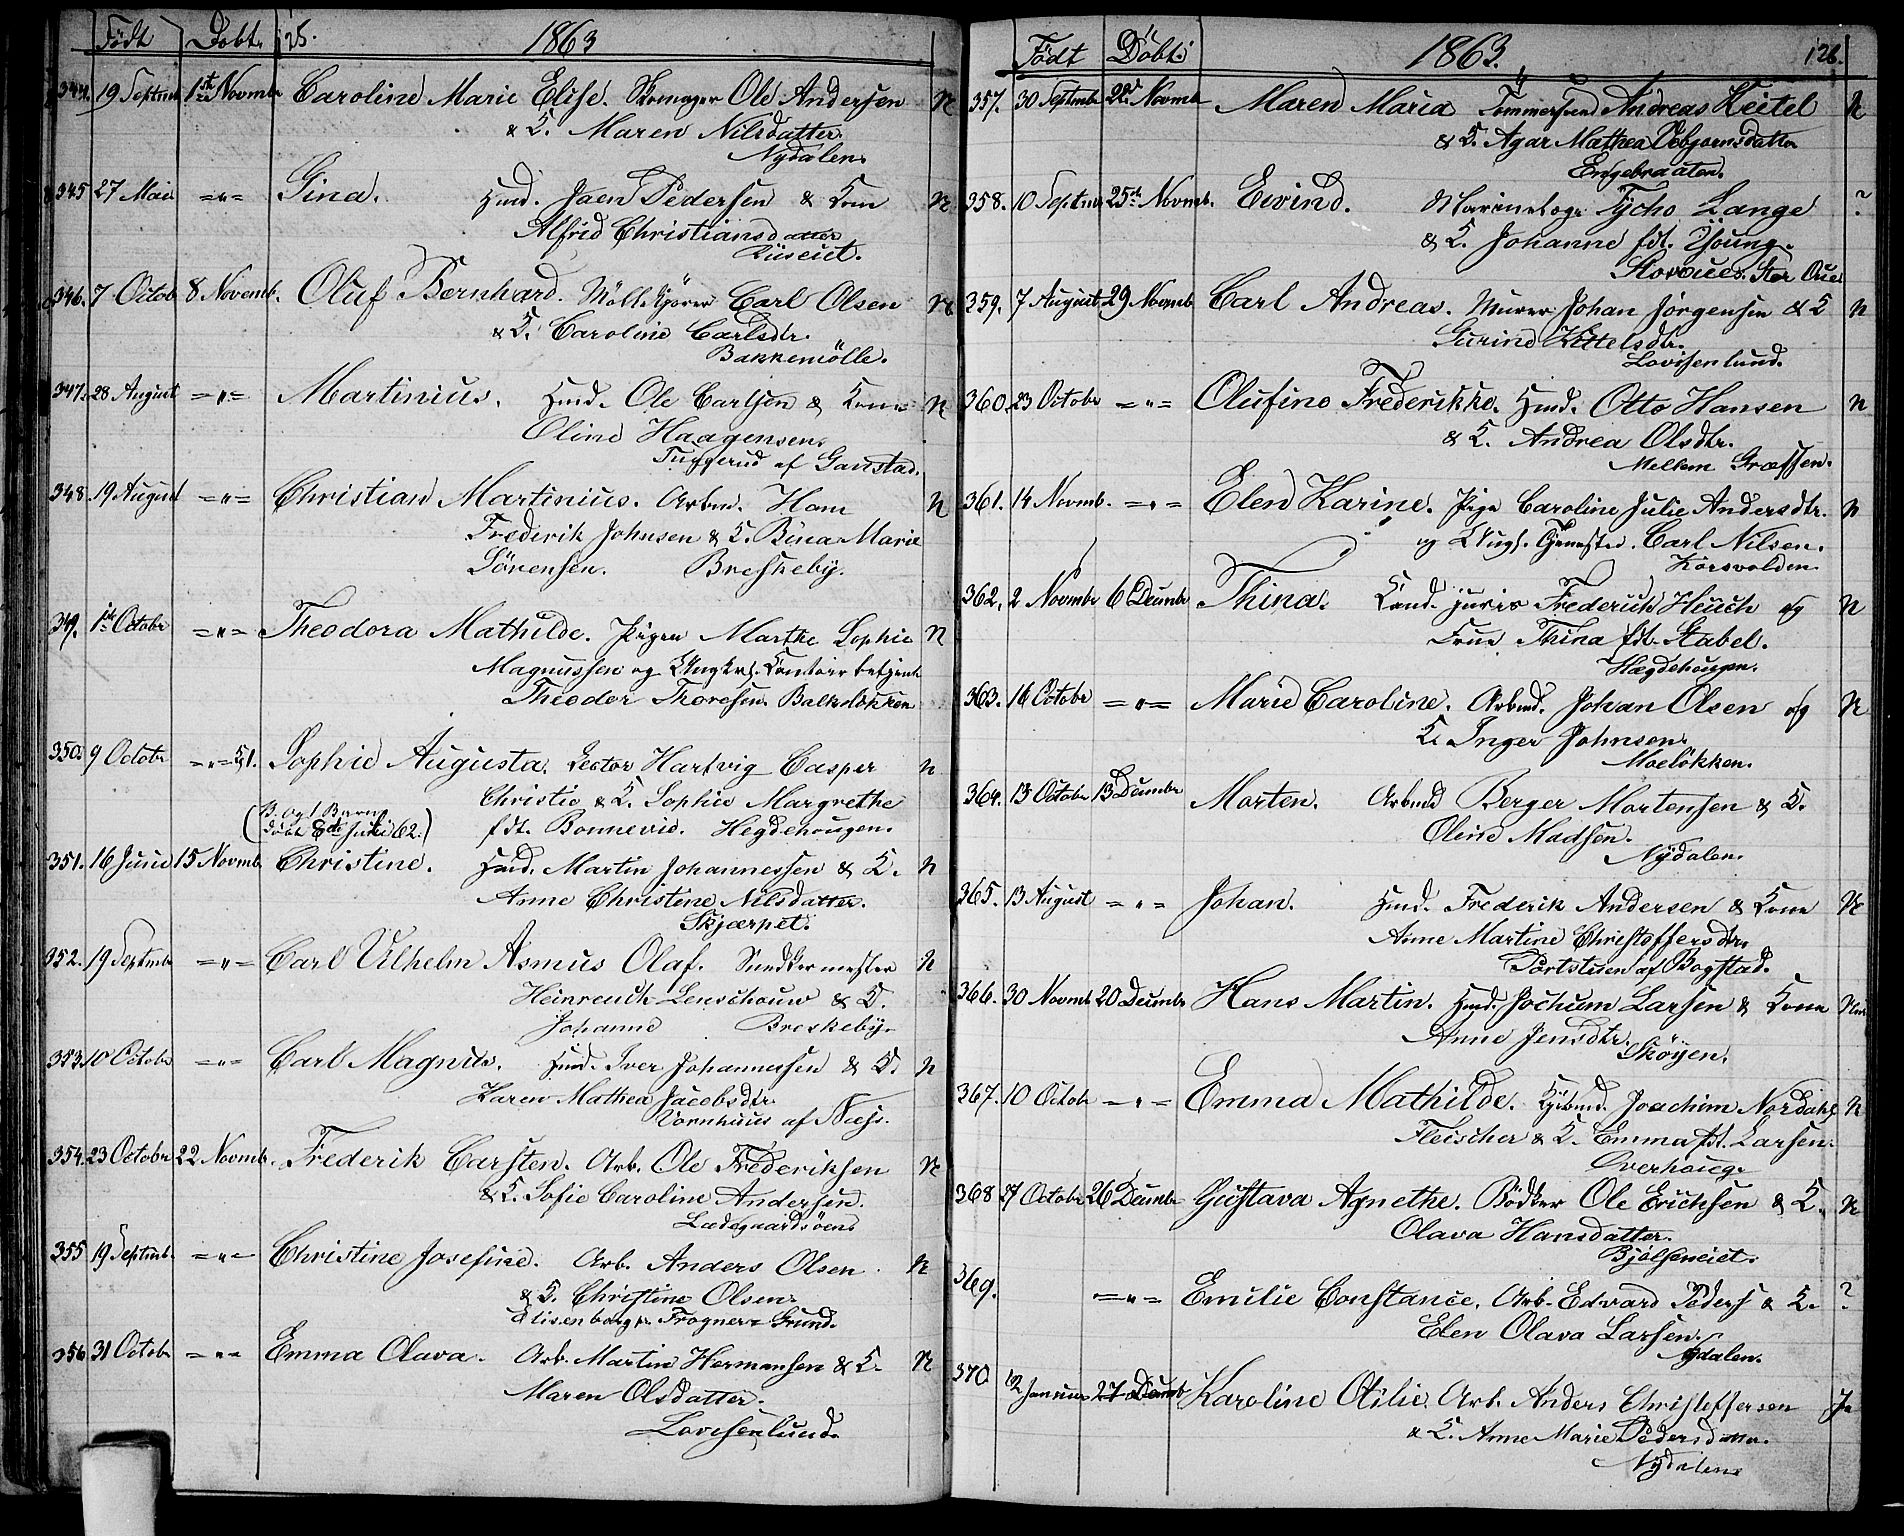 Födt Döbt. 125. 1863
344. 19 Septmb 1ste Novmbr Caroline Marie Elise. Skomager Ole Andersen N
& K. Maren Nilsdatter.
Nydalen.
345 27 Mai =„= Gina. Husmd. Jaen Pedersen & Kone N
Alfrid Christiansdatter
346. 7 Octob 8 Novemb. Oluf Bernhard. Carl Olsen N
& K. Caroline Carlsdtr.
Bakkemölle.
347. 28 August =„= Martinius. Husmd. Ole Carlsen & Kone N
Oline Haagensen.
Tuggerud af Gaustad.
348. 19 August =„= Christian Martinius. Arbmd. Hans N
Frederik Johnsen & K. Bina Marie
Sörensen. Breskeby.
349. 1ste Octobr =„= Theodora Mathilde. Pigen Marthe Sophie N
Magnussen og Ungkrl. Contoirbetjent
Theodor Thoresen. Balkeløkken
350. 9 Octobr =„= Sophie Augusta. Lector Hartvig Casper N
Christie & K. Sophie Margrethe
fdt. Bonnevie. Hegdehougen.
döbt 8de Juli 62.)
351. 16 Juni 15 Novmb. Christine. Husmd. Martin Johannessen & K. N
Anne Christine Nilsdatter.
Skjærpet.
352. 19 Septmbr =„= Carl Vilhelm Asmus Olaf. Snedkermester N
Heinrich Lenschouw & K.
Johanne Breskeby.
353. 10 Octobr =„= Carl Magnus. Husmd. Iver Johannessen & K. N
Karen Mathea Jacobsdtr.
Vornhuus af Næss.
354. 23 Octobr 22 Novmb. Frederik Carsten. Arb. Ole Frederiksen N
& K. Sofie Caroline Andersen.
Ladegaardsöens
355 19 Septmb. =„= Christine Josefine. Arb. Anders Olsen N
& K. Christine Olsen.
Elisenberg pr. Frogner-Grund.
356 31 Octobr =„= Emma Olava. Arb. Martin Hermansen & K. N
Maren Olsdatter.
Lovisenlund.
Födt Döbt. 1863. 126.
357. 30 Septmbr 22d Novmb Maren Maria Tömmermand Andreas Keitel N
& K. Agar Mathea Asbjørnsdatter
Engebraaten.
358. 10 Septmb 25de Novmb. Eivind. Tycho Lange ?
& K. Johanne fdt. Young.
359. 7 August 29 Novmb Carl Andreas. Murer Johan Jørgensen & K N
Gurine Kittelsdtr.
Lovisenlund.
360. 23 Octobr =„= Olufine Frederikke. Husmd. Otto Hansen N
& K. Andrea Olsdtr.
Mellem Græffsen.
361. 14 Novmb. =„= Elen Karine. Pige Caroline Julie Andersdtr. N
og Ungk. Tjeneste. Carl Nilsen.
Korsvolden
362. 2 Novmbr 6 Decmbr Thina. Cand. juris Frederick Heuch og N
Frue Thina fdt. Stabel.
Hægdehougen.
363. 16 Octobr =„= Marie Caroline. Arbmd. Johan Olsen og N
K. Inger Johnsen.
Moeløkken.
364. 13 Octobr 13 Decmbr Morten. Arbmd Berger Mortensen & K.
Oline Madsen.
Nydalen.
365. 13 August =„= Johan. Husmd. Frederik Andersen & Kone N
Anne Martine Christoffersdtr.
Portstuen af Bogstad.
366. 30 Novmb 20 Decmbr Hans Martin. Husmd. Jochum Larsen & Kone
Anne Jensdtr.
Skøyen.
367. 10 Octobr =„= Emma Mathilde. Kjøbmd. Joachim Nordahl N
Fleischer & K. Emma fdt. Larsen.
Overhoug.
368 27 Octobr 26 Decmbr Gustava Agnethe. Bödker Ole Erichsen & K. N
Olava Hansdatter.
Bjølseneiet.
369. =„= Emilie Constance. Arb. Edvard Peders & K. ?
Elen Olava Larsen.
Nydalen.
370 12 Januar 27 Decmb Karoline Otilie. Arb. Anders Christoffersen Ja
& K. Anne Marie Pedersdatter.
Nydalen